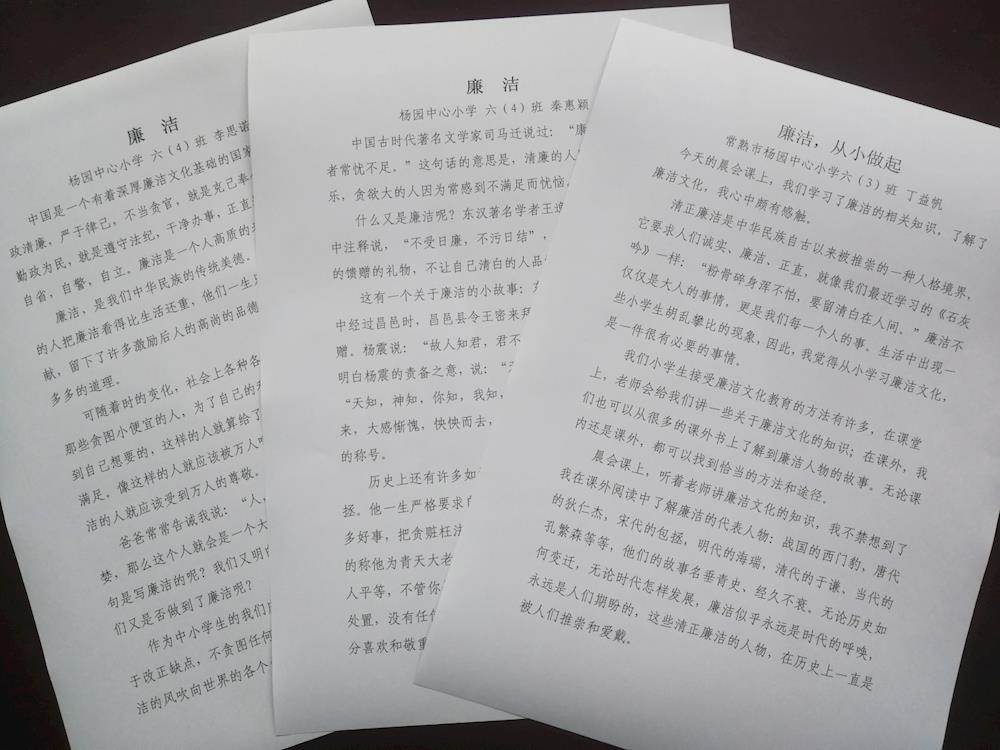 廉 洁
杨园中心小学 六（4）班 李思诺
中国是一个有着深厚廉洁文化基础的国家
政清廉，严于律己，不当贪官，就是克己奉
勤政为民，就是遵守法纪，干净办事，正直
自省，自警，自立。廉洁是一个人高质的
廉洁，是我们中华民族的传统美德。
的人把廉洁看得比生活还重，他们一生
献，留下了许多激励后人的高尚的品德
多多的道理。
可随着时的变化，社会上各种各
那些贪图小便宜的人，为了自己的
到自己想要的，这样的人就算给了
满足。像这样的人就应该被万人
洁的人就应该受到万人的尊敬。
爸爸常常告诫我说：“人，
婪，那么这个人就会是一个大
句是写廉洁的呢？我们又明
们又是否做到了廉洁呢？
作为中小学生的我们
于改正缺点，不贪图任何
洁的风吹向世界的各个
廉 洁
杨园中心小学 六（4）班 秦惠颖
中国古时代著名文学家司马迁说过：“廉
者常忧不足。”这句话的意思是，清廉的人
乐，贪欲大的人因为常感到不满足而忧恼。
什么又是廉洁呢？东汉著名学者王逸
中注释说，“不受日廉，不污日结”，
的馈赠的礼物，不让自己清白的人品
这有一个关于廉洁的小故事：东
中经过昌邑时，昌邑县令王密来拜
赠。杨震说：“故人知君，君不
明白杨震的责备之意，说：“
“天知，神知，你知，我知，
来，大感惭愧，怏怏而去，
的称号。
历史上还有许多如
拯。他一生严格要求
多好事，把贪赃枉法
的称他为青天大老
人平等，不管你
处置，没有任何
分喜欢和敬重
廉洁，从小做起
常熟市杨园中心小学六（3）班 丁益帆
今天的晨会课上，我们学习了廉洁的相关知识，了解了
廉洁文化，我心中颇有感触。
清正廉洁是中华民族自古以来被推崇的一种人格境界，
它要求人们诚实、廉洁、正直，就像我们最近学习的《石灰
吟》一样：“粉骨碎身浑不怕，要留清白在人间。”廉洁不
仅仅是大人的事情，更是我们每一个人的事。生活中出现一
些小学生胡乱攀比的现象，因此，我觉得从小学习廉洁文化，
是一件很有必要的事情。
我们小学生接受廉洁文化教育的方法有许多，在课堂
上，老师会给我们讲一些关于廉洁文化的知识；在课外，我
们也可以从很多的课外书上了解到廉洁人物的故事。无论课
内还是课外，都可以找到恰当的方法和途径。
晨会课上，听着老师讲廉洁文化的知识，我不禁想到了
我在课外阅读中了解廉洁的代表人物：战国的西门豹，唐代
的狄仁杰，宋代的包拯，明代的海瑞，清代的于谦、当代的
孔繁森等等，他们的故事名垂青史、经久不衰。无论历史如
何变迁，无论时代怎样发展，廉洁似乎永远是时代的呼唤，
永远是人们期盼的，这些清正廉洁的人物，在历史上一直是
被人们推崇和爱戴。